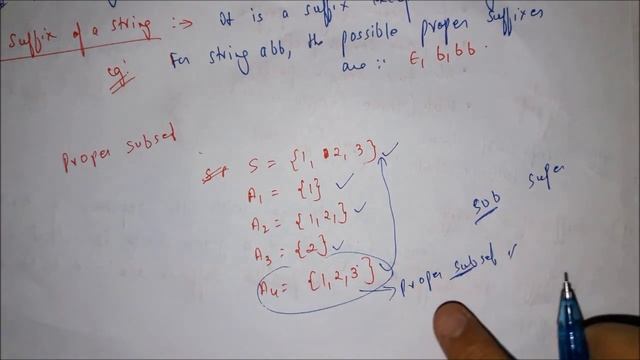 suffix of a string :→ It is a suffix except
eg: For string abb, the possible proper suffixes
are :: ϵ, b, bb.
Proper subset
S = {1, 2, 3} ✓
A₁ = {1} ✓
A₂ = {1, 2, } ✓
A₃ = {2} ✓
A₄ = {1, 2, 3} ✓
sub super
Proper subset ✓